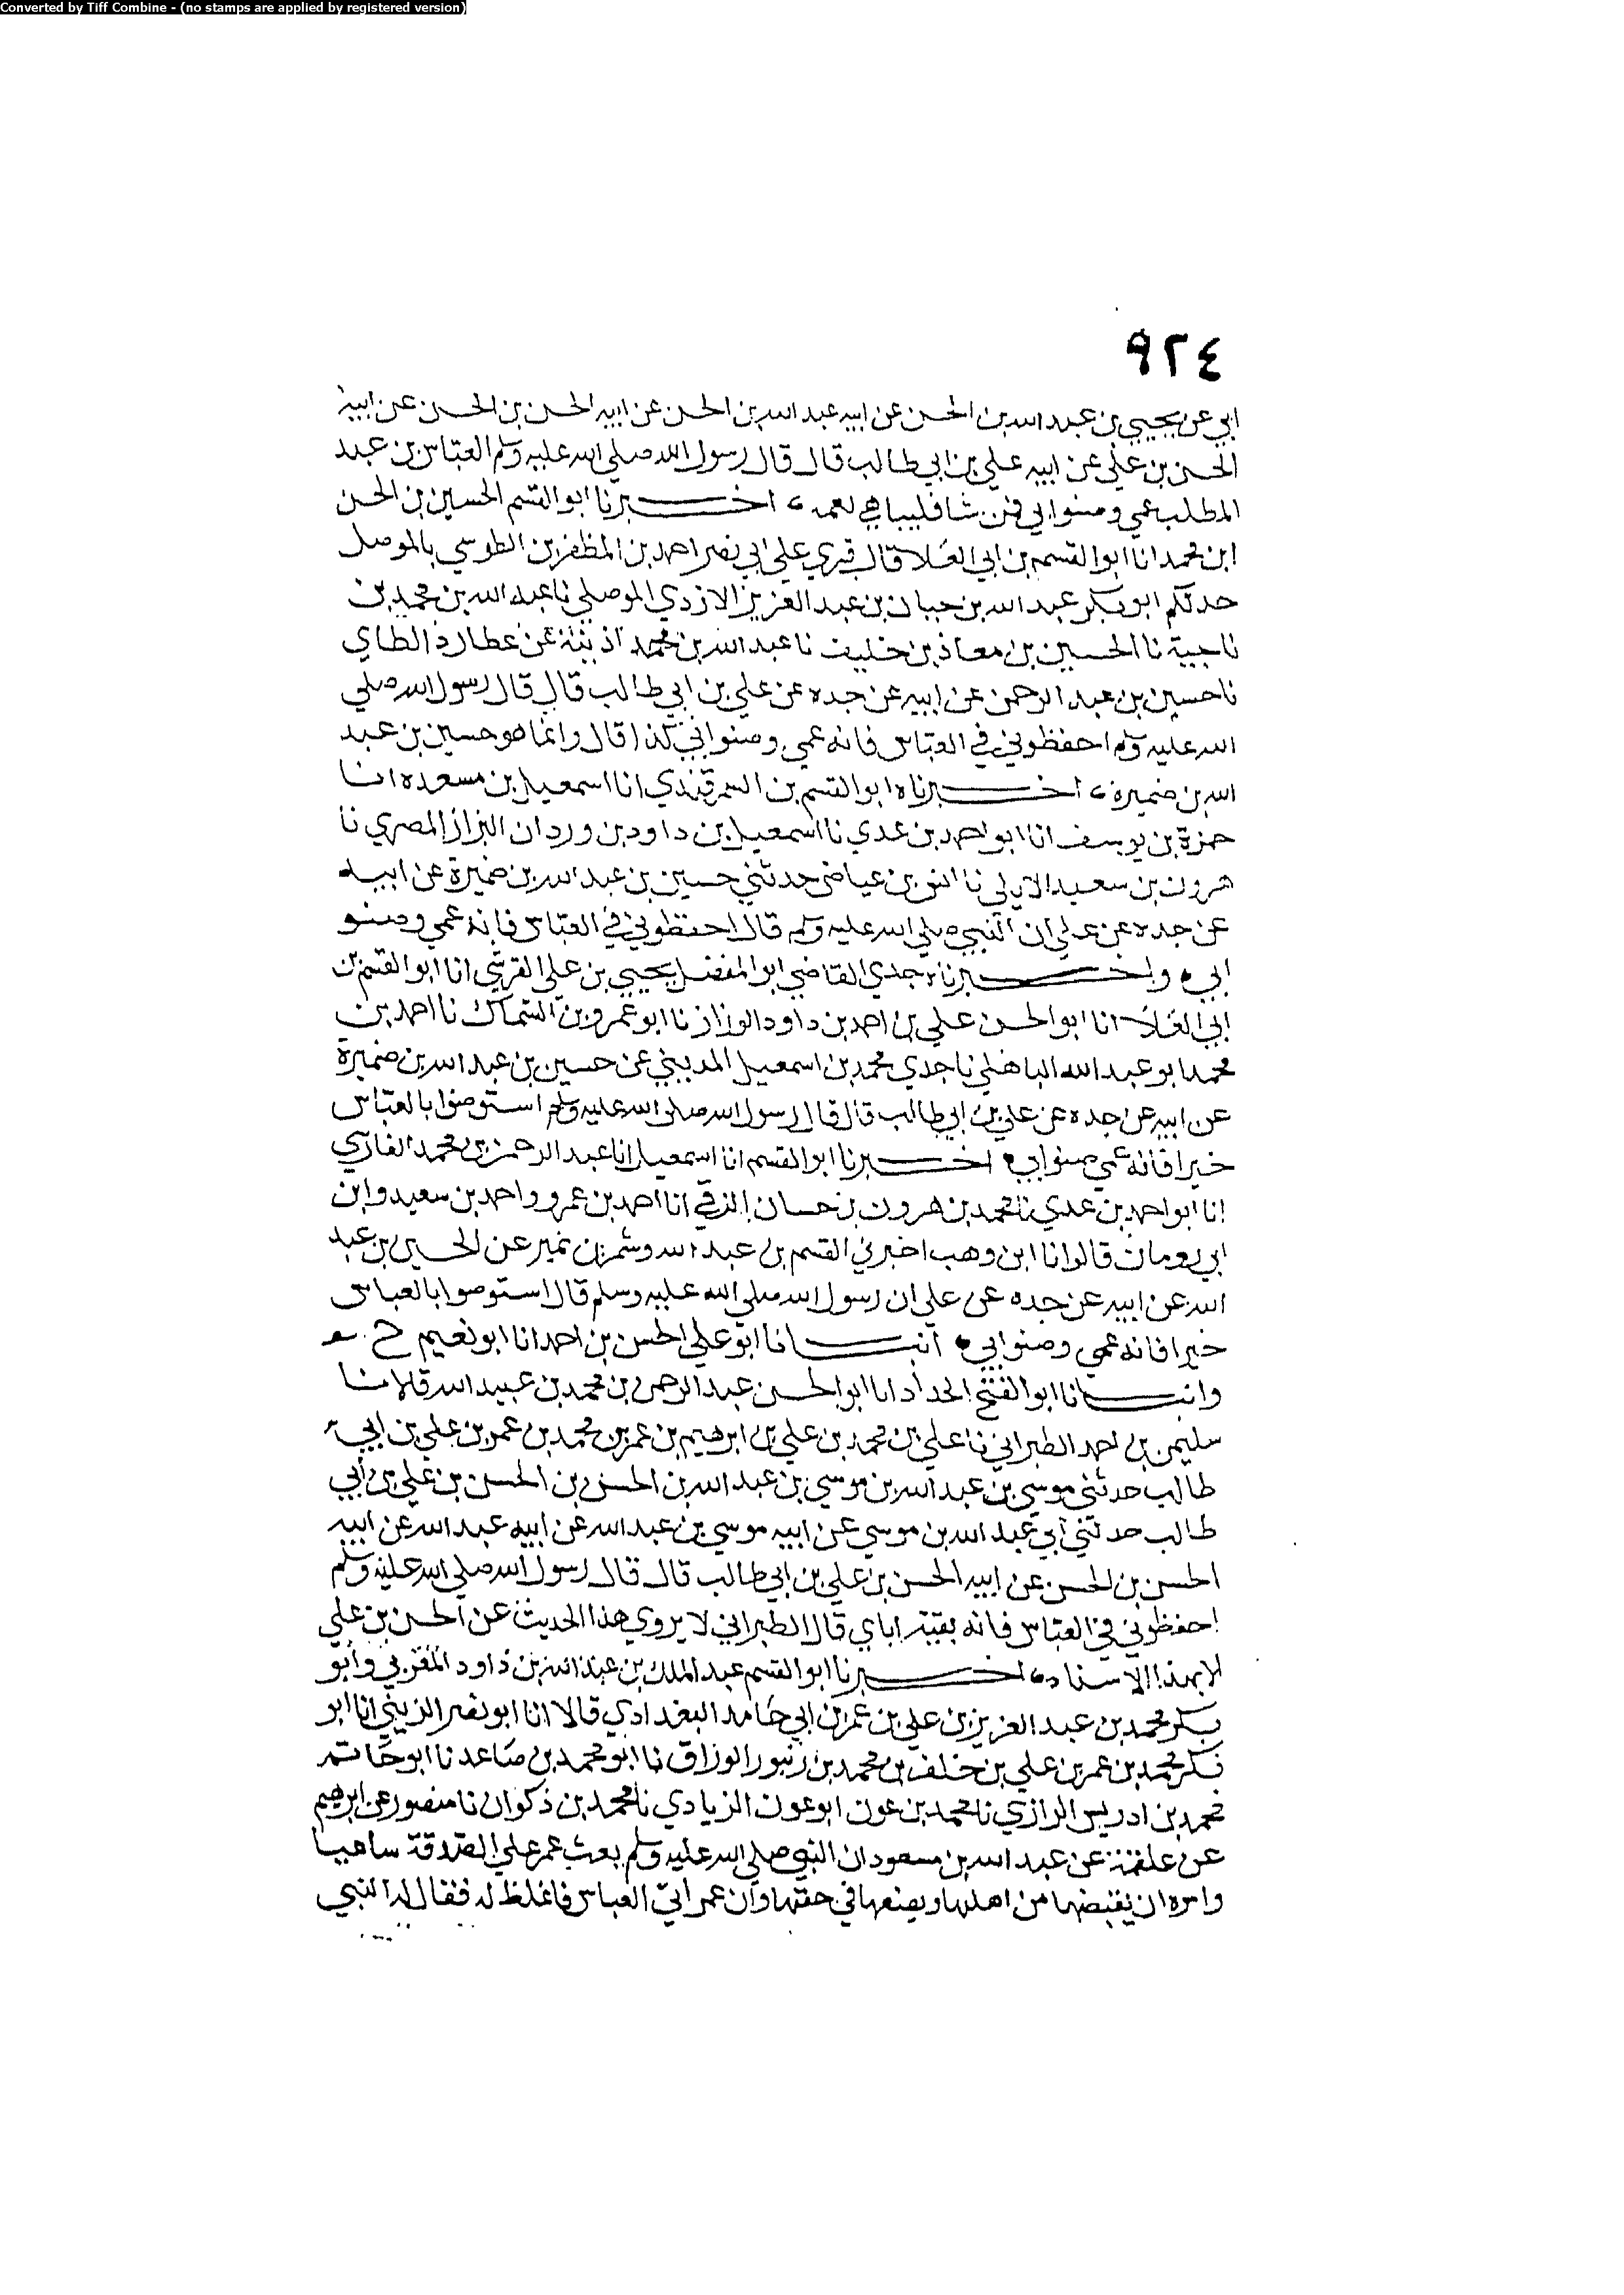 Converted by Tiff Combine - (no stamps are applied by registered version)
٩٢٤
ابي عن يحيى بن عبد الله بن الحسن عن ابيه عبد الله بن الحسن عن ابيه الحسن بن الحسن عن ابيه
الحسن بن علي عن ابيه علي بن ابي طالب قال قال رسول الله صلى الله عليه وسلم العباس بن عبد
المطلب عمي وصنو ابي فمن شا فليباهي بعمه اخبرنا ابو القسم الحسين بن الحسن
ابن محمد انا ابو القسم بن ابي العلا قال قري على ابي نصر احمد بن المظفر بن الطوسي بالموصل
حدثكم ابو بكر عبد الله بن حبان بن عبد العزيز الازدي الموصلي نا عبد الله بن محمد بن
ناجية نا الحسين بن معاذ بن خليف نا عبد الله بن محمد اذينة عن عطارد الطاي
نا حسين بن عبد الرحمن عن ابيه عن جده عن علي بن ابي طالب قال قال رسول الله صلى
الله عليه وسلم احفظوني في العباس فانه عمي وصنو ابي كذا قال وانما هو حسين بن عبد
الله بن ضميرة اخبرناه ابو القسم بن السمرقندي انا اسمعيل بن مسعده انا
حمزة بن يوسف انا ابو احمد بن عدي نا اسمعيل بن داود بن وردان البزاز المصري نا
هرون بن سعيد الايلي نا انس بن عياض حدثني حسين بن عبد الله بن ضميرة عن ابيه
عن جده عن علي ان النبي صلى الله عليه وسلم قال احفظوني في العباس فانه عمي وصنو
ابي واخبرناه جدي القاضي ابو المفضل يحيى بن علي القرشي انا ابو القسم بن
ابي العلا انا ابو الحسن علي بن احمد بن داود الوزاز نا ابو عمرو بن السماك نا احمد بن
محمد ابو عبد الله الباهلي نا جدي محمد بن اسمعيل المديني عن حسين بن عبد الله بن ضميرة
عن ابيه عن جده عن علي بن ابي طالب قال قال رسول الله صلى الله عليه وسلم استوصوا بالعباس
خيرا فانه عمي صنو ابي اخبرنا ابو القسم انا اسمعيل انا عبد الرحمن بن محمد الفارسي
انا ابو احمد بن عدي نا محمد بن هرون بن حسان انا احمد بن عمرو واحمد بن سعيد وابن
ابي رومان قالوا انا ابن وهب اخبرني القسم بن عبد الله وشمر بن نمير عن الحسين بن عبد
الله عن ابيه عن جده عن علي ان رسول الله صلى الله عليه وسلم قال استوصوا بالعباس
خيرا فانه عمي وصنو ابي انبانا ابو علي الحسن بن احمد انا ابو نعيم ح
وانبانا ابو الفتح الحداد انا ابو الحسن عبد الرحمن بن محمد بن عبيد الله قالا نا
سليمن بن احمد الطبراني نا علي بن محمد بن علي بن ابرهيم بن عمر بن محمد بن عمر بن علي بن ابي
طالب حدثني موسى بن عبد الله بن موسى بن عبد الله بن الحسن بن الحسن بن علي بن ابي
طالب حدثني ابي عبد الله بن موسى عن ابيه موسى بن عبد الله عن ابيه عبد الله عن ابيه
الحسن بن الحسن عن ابيه الحسن بن علي بن ابي طالب قال قال رسول الله صلى الله عليه وسلم
احفظوني في العباس فانه بقية اباي قال الطبراني لا يروي هذا الحديث عن الحسن بن علي
لا بهذا الاسناد اخبرنا ابو القسم عبد الملك بن عبد الله بن داود المغربي وابو
بكر محمد بن عبد العزيز بن علي بن عمر بن ابي حامد البغدادي قالا انا ابو نصر الزينبي انا ابو
بكر محمد بن عمر بن علي بن خلف بن محمد بن زنبور الوراق نا ابو محمد بن صاعد نا ابو حاتم
محمد بن ادريس الرازي نا محمد بن عون ابو عون الزيادي نا محمد بن ذكوان نا منصور عن ابرهيم
عن علقمة عن عبد الله بن مسعود ان النبي صلى الله عليه وسلم بعث عمر على الصدقة ساعيا
وامره ان يقبضها من اهلها ويضعها في حقها وان عمر اتى العباس فاغلظ له فقال له النبي